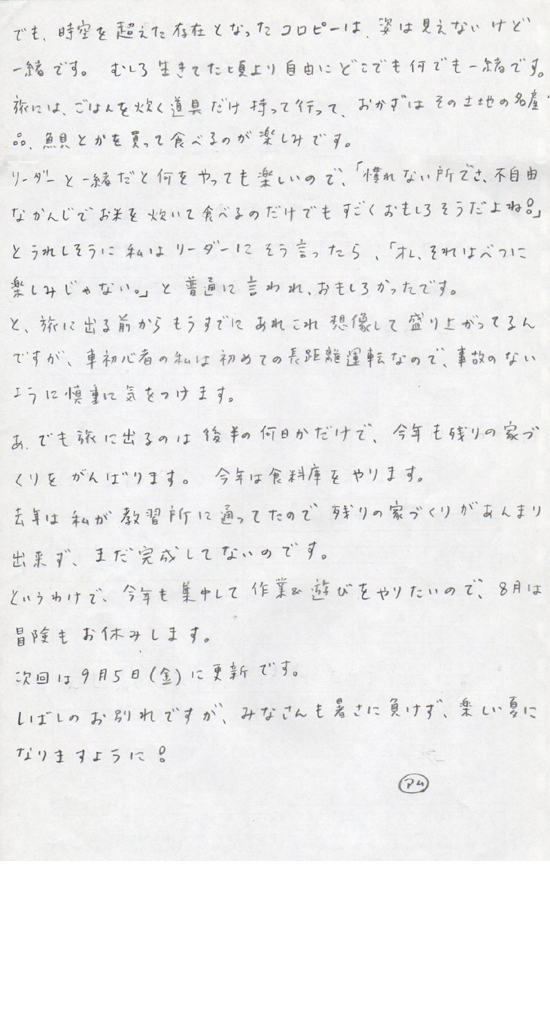 でも、時空を超えた存在となったコロピーは、姿は見えないけど
一緒です。 むしろ生きてた頃より自由にどこでも何でも一緒です。
旅には、ごはんを炊く道具だけ持って行って、おかずはその土地の名産
品、魚貝とかを買って食べるのが楽しみです。
リーダーと一緒だと何をやっても楽しいので、「慣れない所でさ、不自由
なかんじでお米を炊いて食べるのだけでもすごくおもしろそうだよね!」
とうれしそうに私はリーダーにそう言ったら、「オレ、それはべつに
楽しみじゃない。」と普通に言われ、おもしろかったです。
と、旅に出る前からもうすでにあれこれ想像して盛り上がってるん
ですが、車初心者の私は初めての長距離運転なので、事故のない
ように慎重に気をつけます。
あ、でも旅に出るのは後半の何日かだけで、今年も残りの家づ
くりをがんばります。 今年は食料庫をやります。
去年は私が教習所に通ってたので残りの家づくりがあんまり
出来ず、まだ完成してないのです。
というわけで、今年も集中して作業&遊びをやりたいので、8月は
冒険もお休みします。
次回は9月5日(金)に更新です。
しばしのお別れですが、みなさんも暑さに負けず、楽しい夏に
なりますように!
アム